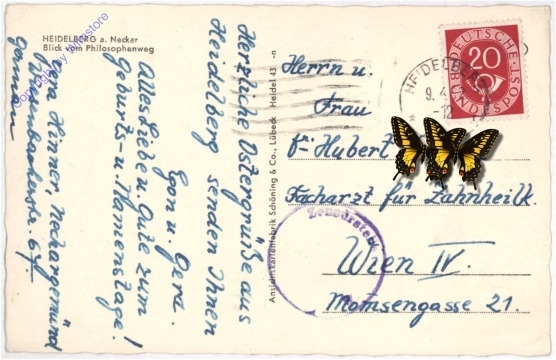 HEIDELBERG a. Neckar
Blick vom Philosophenweg
Herzliche Ostergrüße aus
Heidelberg senden Ihnen
Egon u. Gerda.
Alles Lieben Gute zum
Geburts- u. Namenstage!
Hinner, Neckargemünd
Germany
Ansichtskartenfabrik Schöning & Co., Lübeck Heidel 43 -n
DEUTSCHE BUNDESPOST
20
HEIDELBE
9. 4.
Herrn u.
Frau
Dr Hubert
Facharzt für Zahnheilk.
Wien IV.
Momsengasse 21.